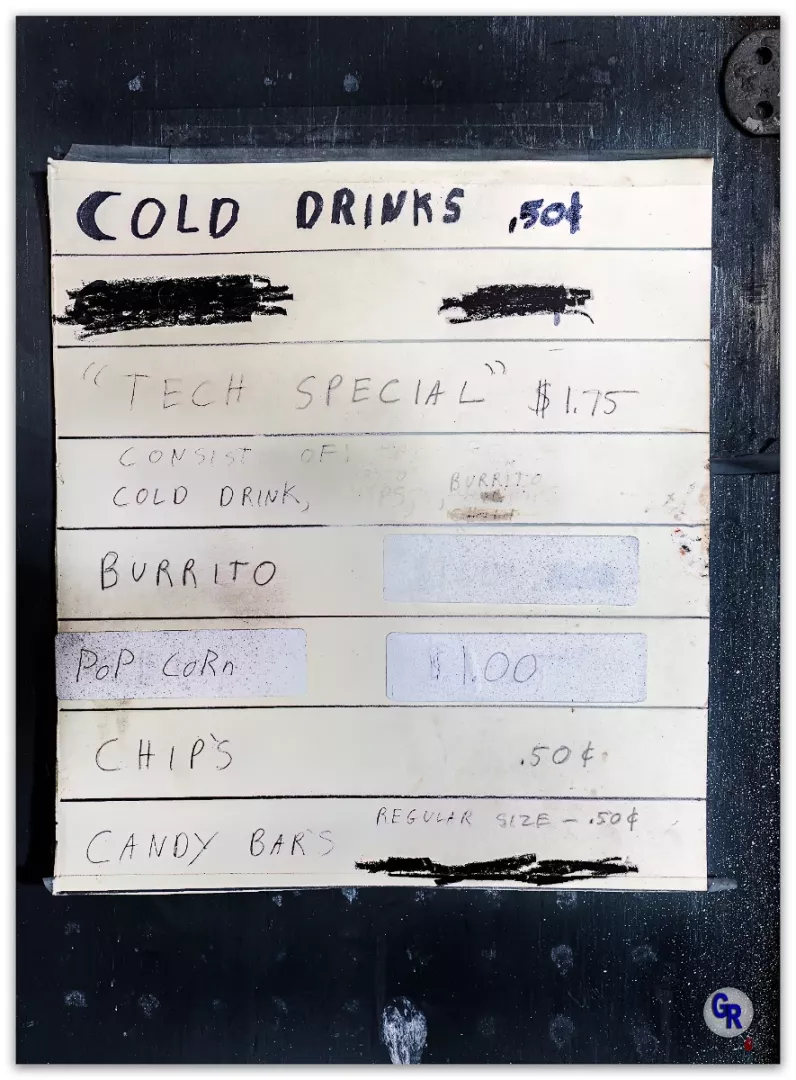 COLD DRINKS .50¢
"TECH SPECIAL" $1.75
CONSIST OF:
COLD DRINK, BURRITO
BURRITO
POP CORn $1.00
CHIP'S .50¢
REGULAR SIZE - .50¢
CANDY BAR'S
GR